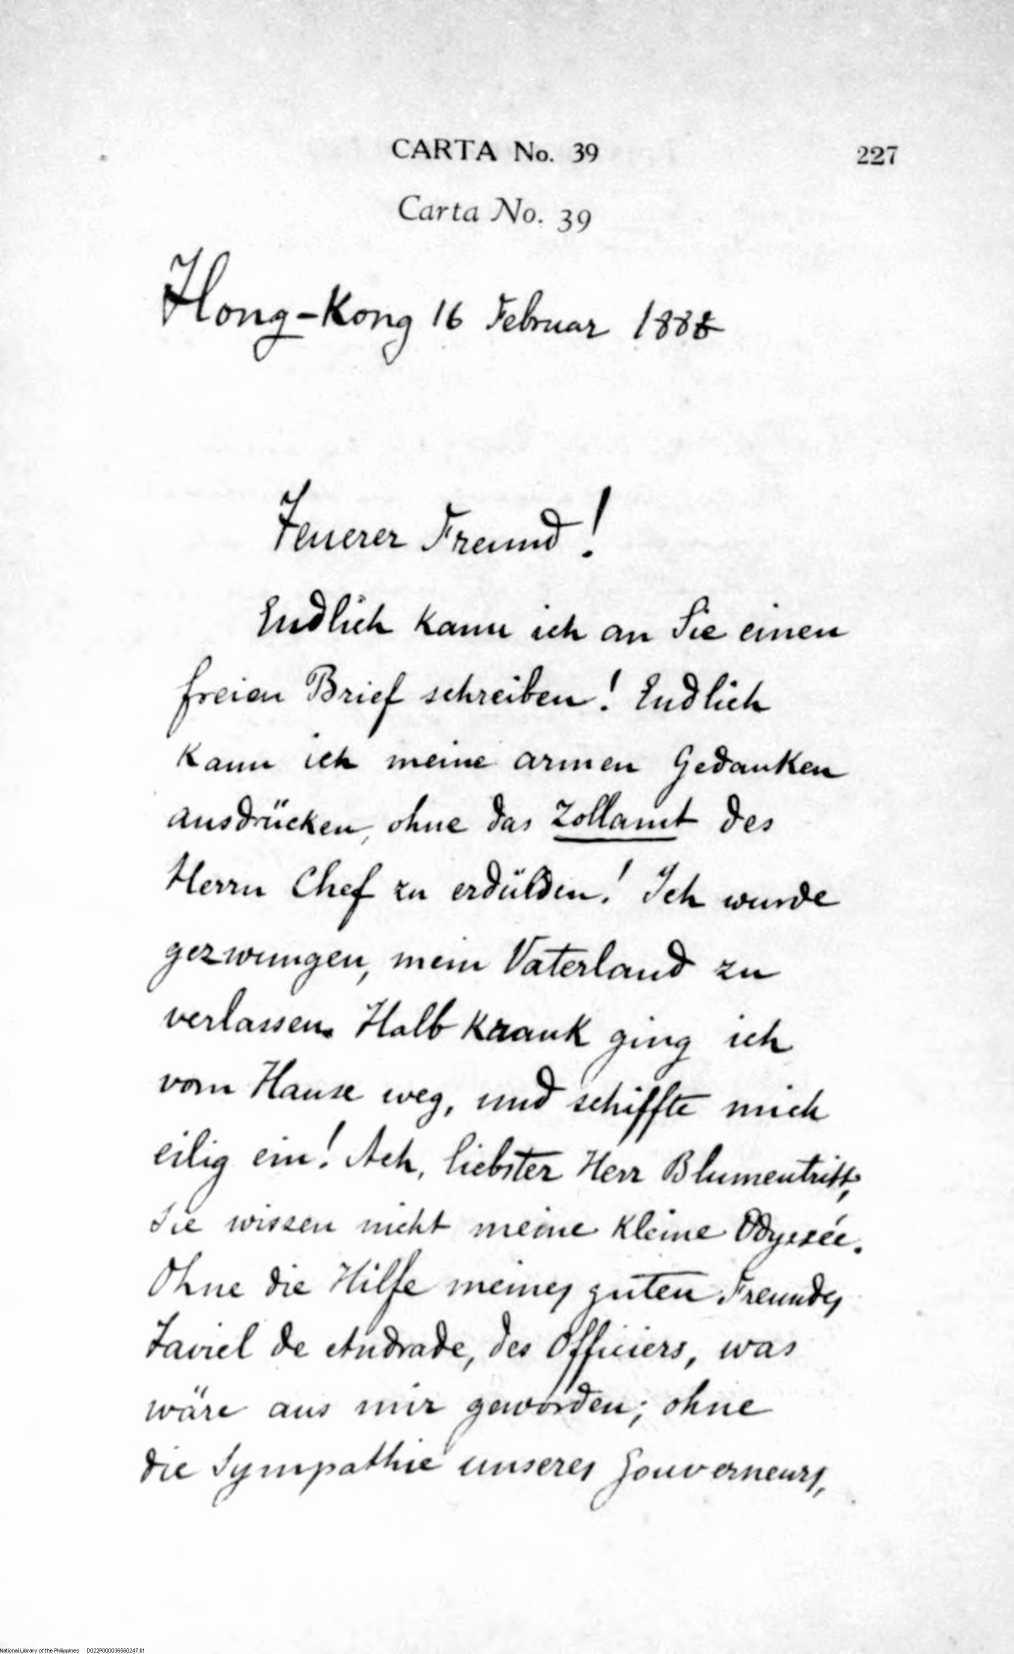 CARTA No. 39
227
Carta No. 39
Hong-Kong 16 Februar 1888
Teuerer Freund!
Endlich kann ich an Sie einen
freien Brief schreiben! Endlich
kann ich meine armen Gedanken
ausdrücken, ohne das Zollamt des
Herrn Chef zu erdülden! Ich wurde
gezwungen, mein Vaterland zu
verlassen. Halb krank ging ich
vom Hause weg, und schiffte mich
eilig ein! Ach, liebster Herr Blumentritt,
Sie wissen nicht meine kleine Odyseée.
Ohne die Hilfe meines guten Freundes
Taviel de Andrade, des Officiers, was
wäre aus mir geworden; ohne
die Sympathie unseres Gouverneurs,
National Library of the Philippines